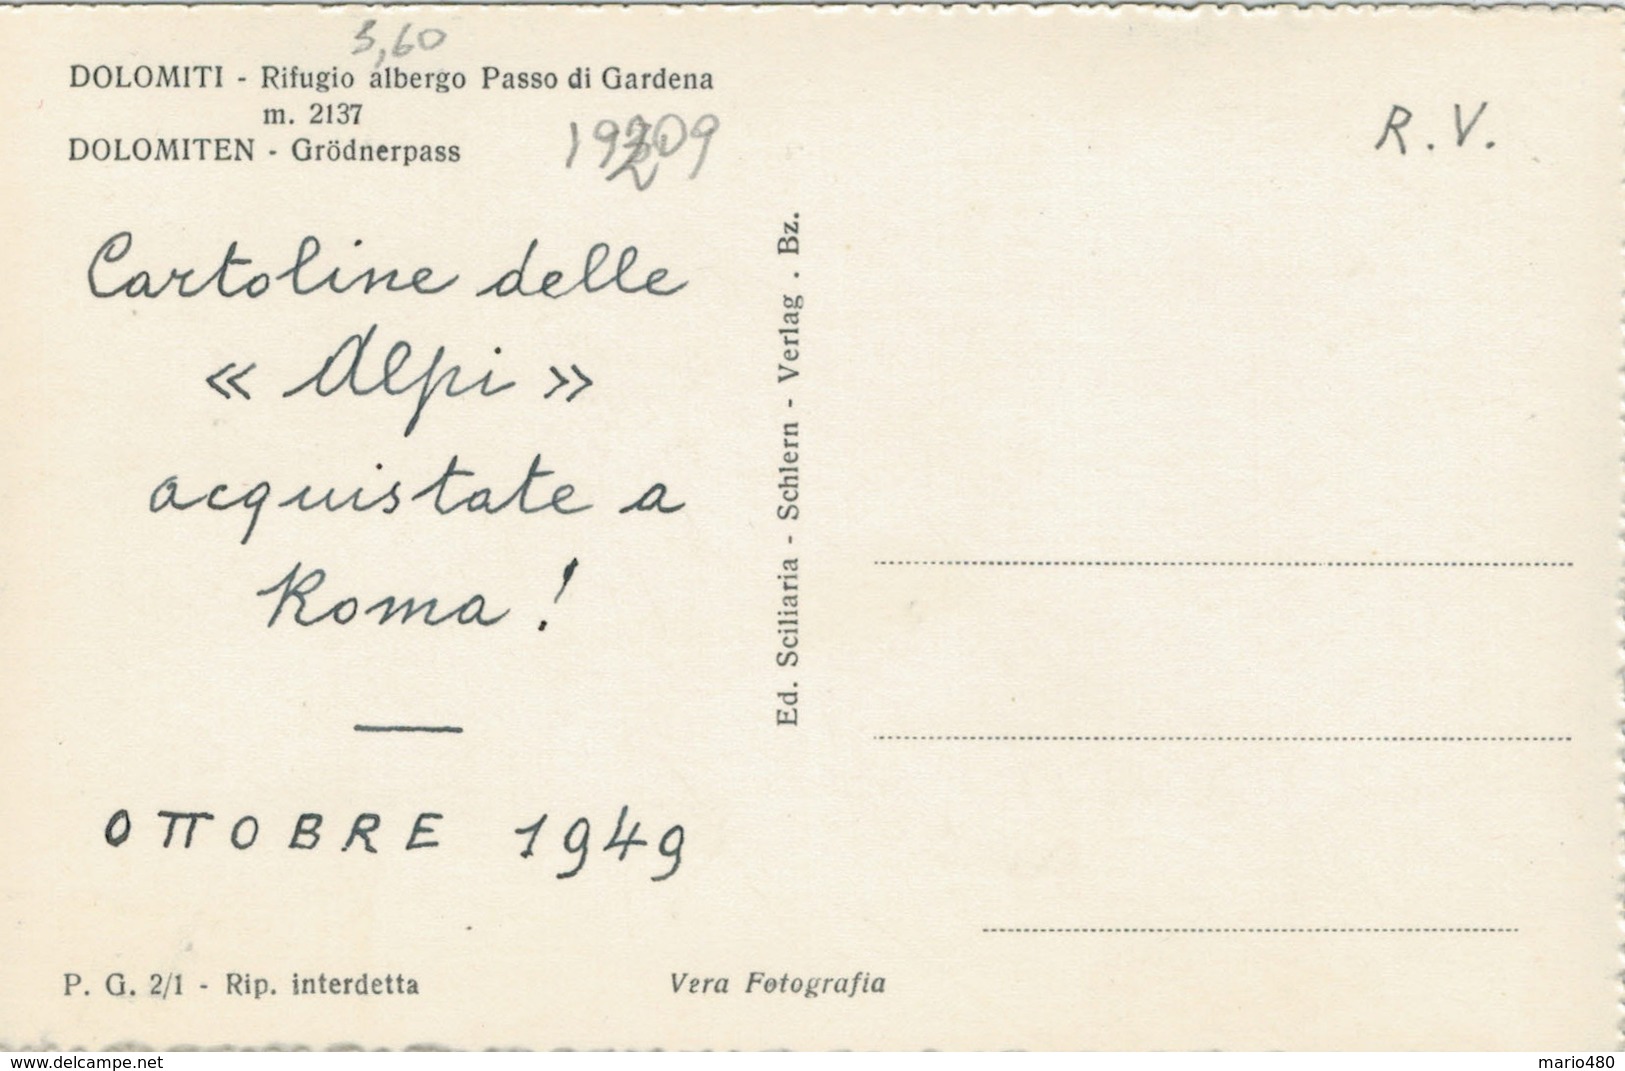 5,60
DOLOMITI - Rifugio albergo Passo di Gardena
m. 2137
DOLOMITEN - Grödnerpass
R. V.
Cartoline delle
« Alpi »
acquistate a
Roma !
OTTOBRE 1949
Ed. Sciliaria - Schlern - Verlag . Bz.
P. G. 2/1 - Rip. interdetta
Vera Fotografia
www.delcampe.net
mario480